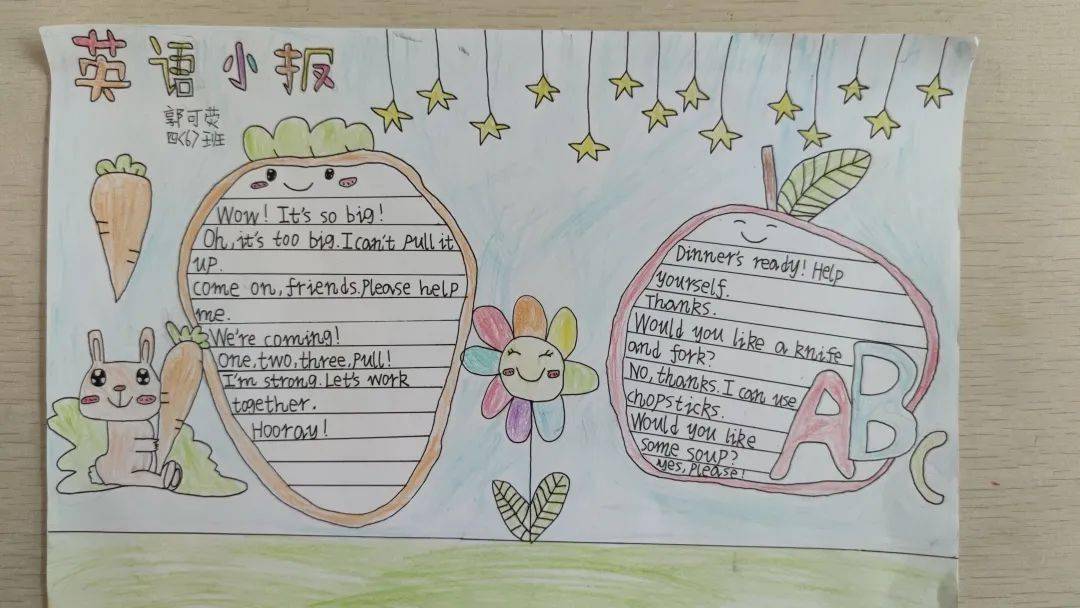 英语小报
郭可荧
四(6)班
Wow! It's so big!
Oh, it's too big. I can't pull it
up.
come on, friends. Please help
me.
We're coming!
One, two, three, pull!
I'm strong. Let's work
together.
Hooray!
Dinner's ready! Help
yourself.
Thanks.
Would you like a knife
and fork?
No, thanks. I can use
chopsticks.
Would you like
some soup?
Yes, please!
ABC